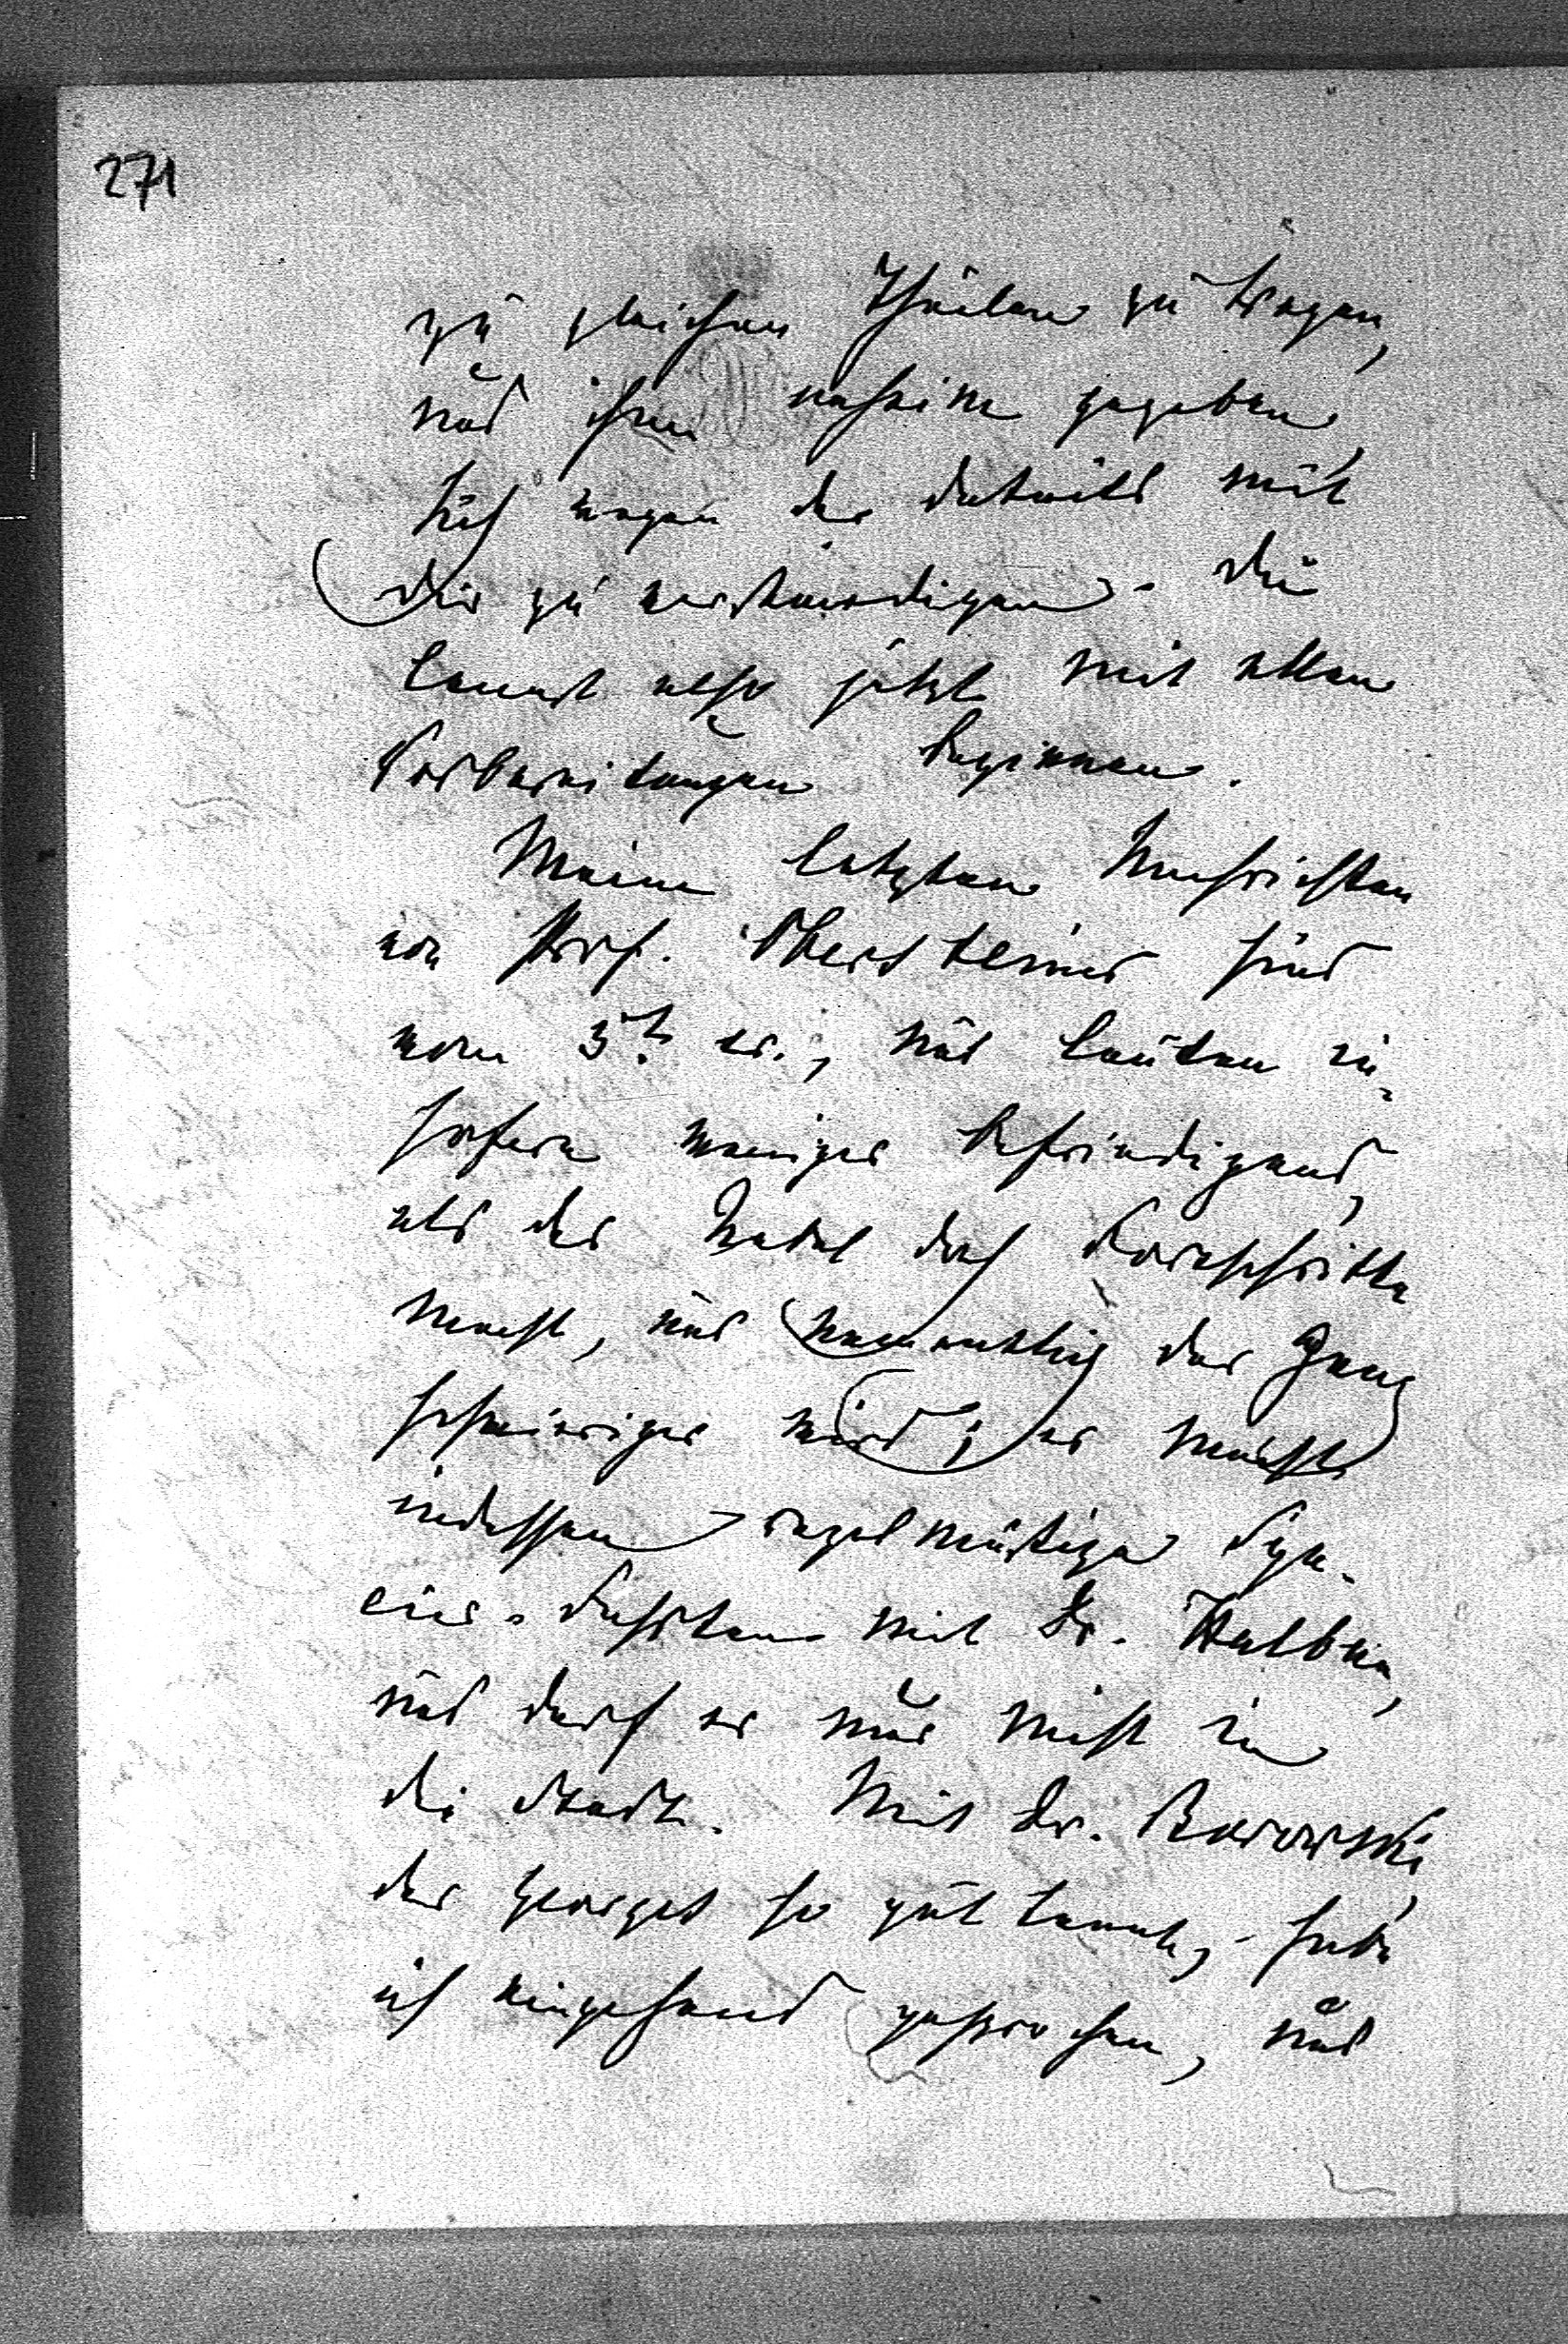 271
zu gleichen Theilen zu tragen,
und ihm anheim gegeben,
sich wegen der Details mit
Dir zu verständigen. Du
kannst also jetzt mit allen
Vorbereitungen beginnen.
Meine letzten Nachrichten
von Prof. Obersteiner sind
vom 5t. cr., und lauten in-
sofern weniger befriedigend,
als das Uebel doch Fortschritte
macht, und namentlich der Gang
schwieriger wird; er macht
indessen regelmäßige
mit Dr. Halban,
und darf er nur nicht in
die Stadt. Mit Dr. Borowski
der Georges so gut kennt, habe
ich eingehend gesprochen, und